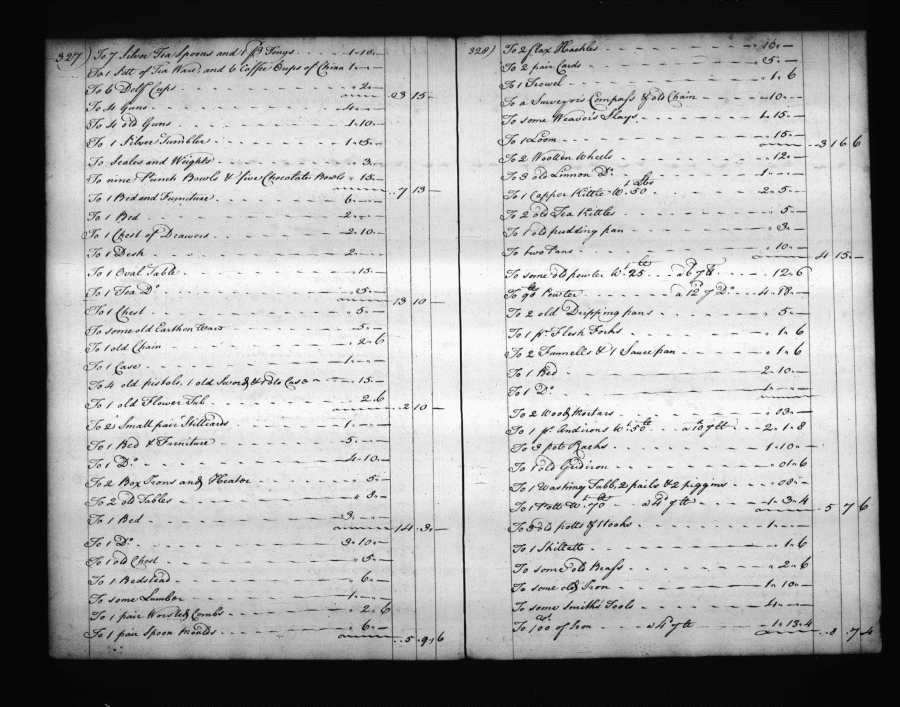 327) To 7 Silver Tea Spoons and 1 pr Tongs 1 10 -
To 1 Sett of Tea Ware, and 6 Coffee Cups of China 1 - -
To 6 Delf Cups 2 - 3 15 -
To 4 Guns 4 - -
To 4 old Guns 1 10 -
To 1 Silver Tumbler 1 5 -
To Scales and Weights 3 -
To nine Punch Bowls & five Chocolate Bowls 15 - 7 13 -
To 1 Bed and Furniture 6 - -
To 1 Bed 2 - -
To 1 Chest of Drawers 2 10 -
To 1 Desk 2 - -
To 1 Oval Table 15 -
To 1 Tea Do 5 - 13 10 -
To 1 Chest 5 -
To some old Earthen Ware 5 -
To 1 old Chain 2 6
To 1 Case 1 - -
To 4 old pistols, 1 old Sword & Case 15 -
To 1 old Flower Tub 2 6 2 10 -
To 2 Small pair Stilliards 1 - -
To 1 Bed & Furniture 5 - -
To 1 Do 4 10 -
To 2 Box Irons and Heator 5 -
To 2 old Tables 8 -
To 1 Bed 3 - - 14 3 -
To 1 Do 3 10 -
To 1 old Chest 5 -
To 1 Bedstead 6 -
To some Lumbor 1 - -
To 1 pair Worsted Combs 2 6
To 1 pair Spoon Moulds 6 - 5 9 6
328) To 2 flax Hackles 10 -
To 2 pair Cards 5 -
To 1 Trowel 1 6
To a Surveyors Compass & old Chain 10 -
To some Weavers Slays 1 15 -
To 1 Loom 15 - 3 16 6
To 2 Woollen Wheels 12 -
To 3 old Linnon Do 1 - -
To 1 Copper Kittle Wt. 50 lbs 2 5 -
To 2 old Tea Kittles 5 -
To 1 old pudding pan 3 -
To two Pans 10 - 4 15 -
To some old pewter Wt 25 lb a 6d 12 6
To 90 lb Pewter a 12d Do 4 18 -
To 2 old Dripping pans 5 -
To 1 pr Flesh Forks 1 6
To 2 Funnells & 1 Sauce pan 1 6
To 1 Bed 2 10 -
To 1 Do 1 - -
To 2 Wood Mortars 3 -
To 1 pr Andirons Wt 50 lb a 10d 2 1 8
To 3 pot Racks 1 10 -
To 1 old Gridiron 1 6
To 1 Washing Tubb, 2 pails & 2 piggins 08 -
To 1 Pott Wt 70 lb a 4d 1 3 4 5 7 6
To 3 old potts & Hooks 1 - -
To 1 Skillett 1 6
To some old Brass 2 6
To some old Iron 1 10 -
To some Smiths Tools 4 - -
To 100 of Iron a 4d 1 13 4 8 7 4